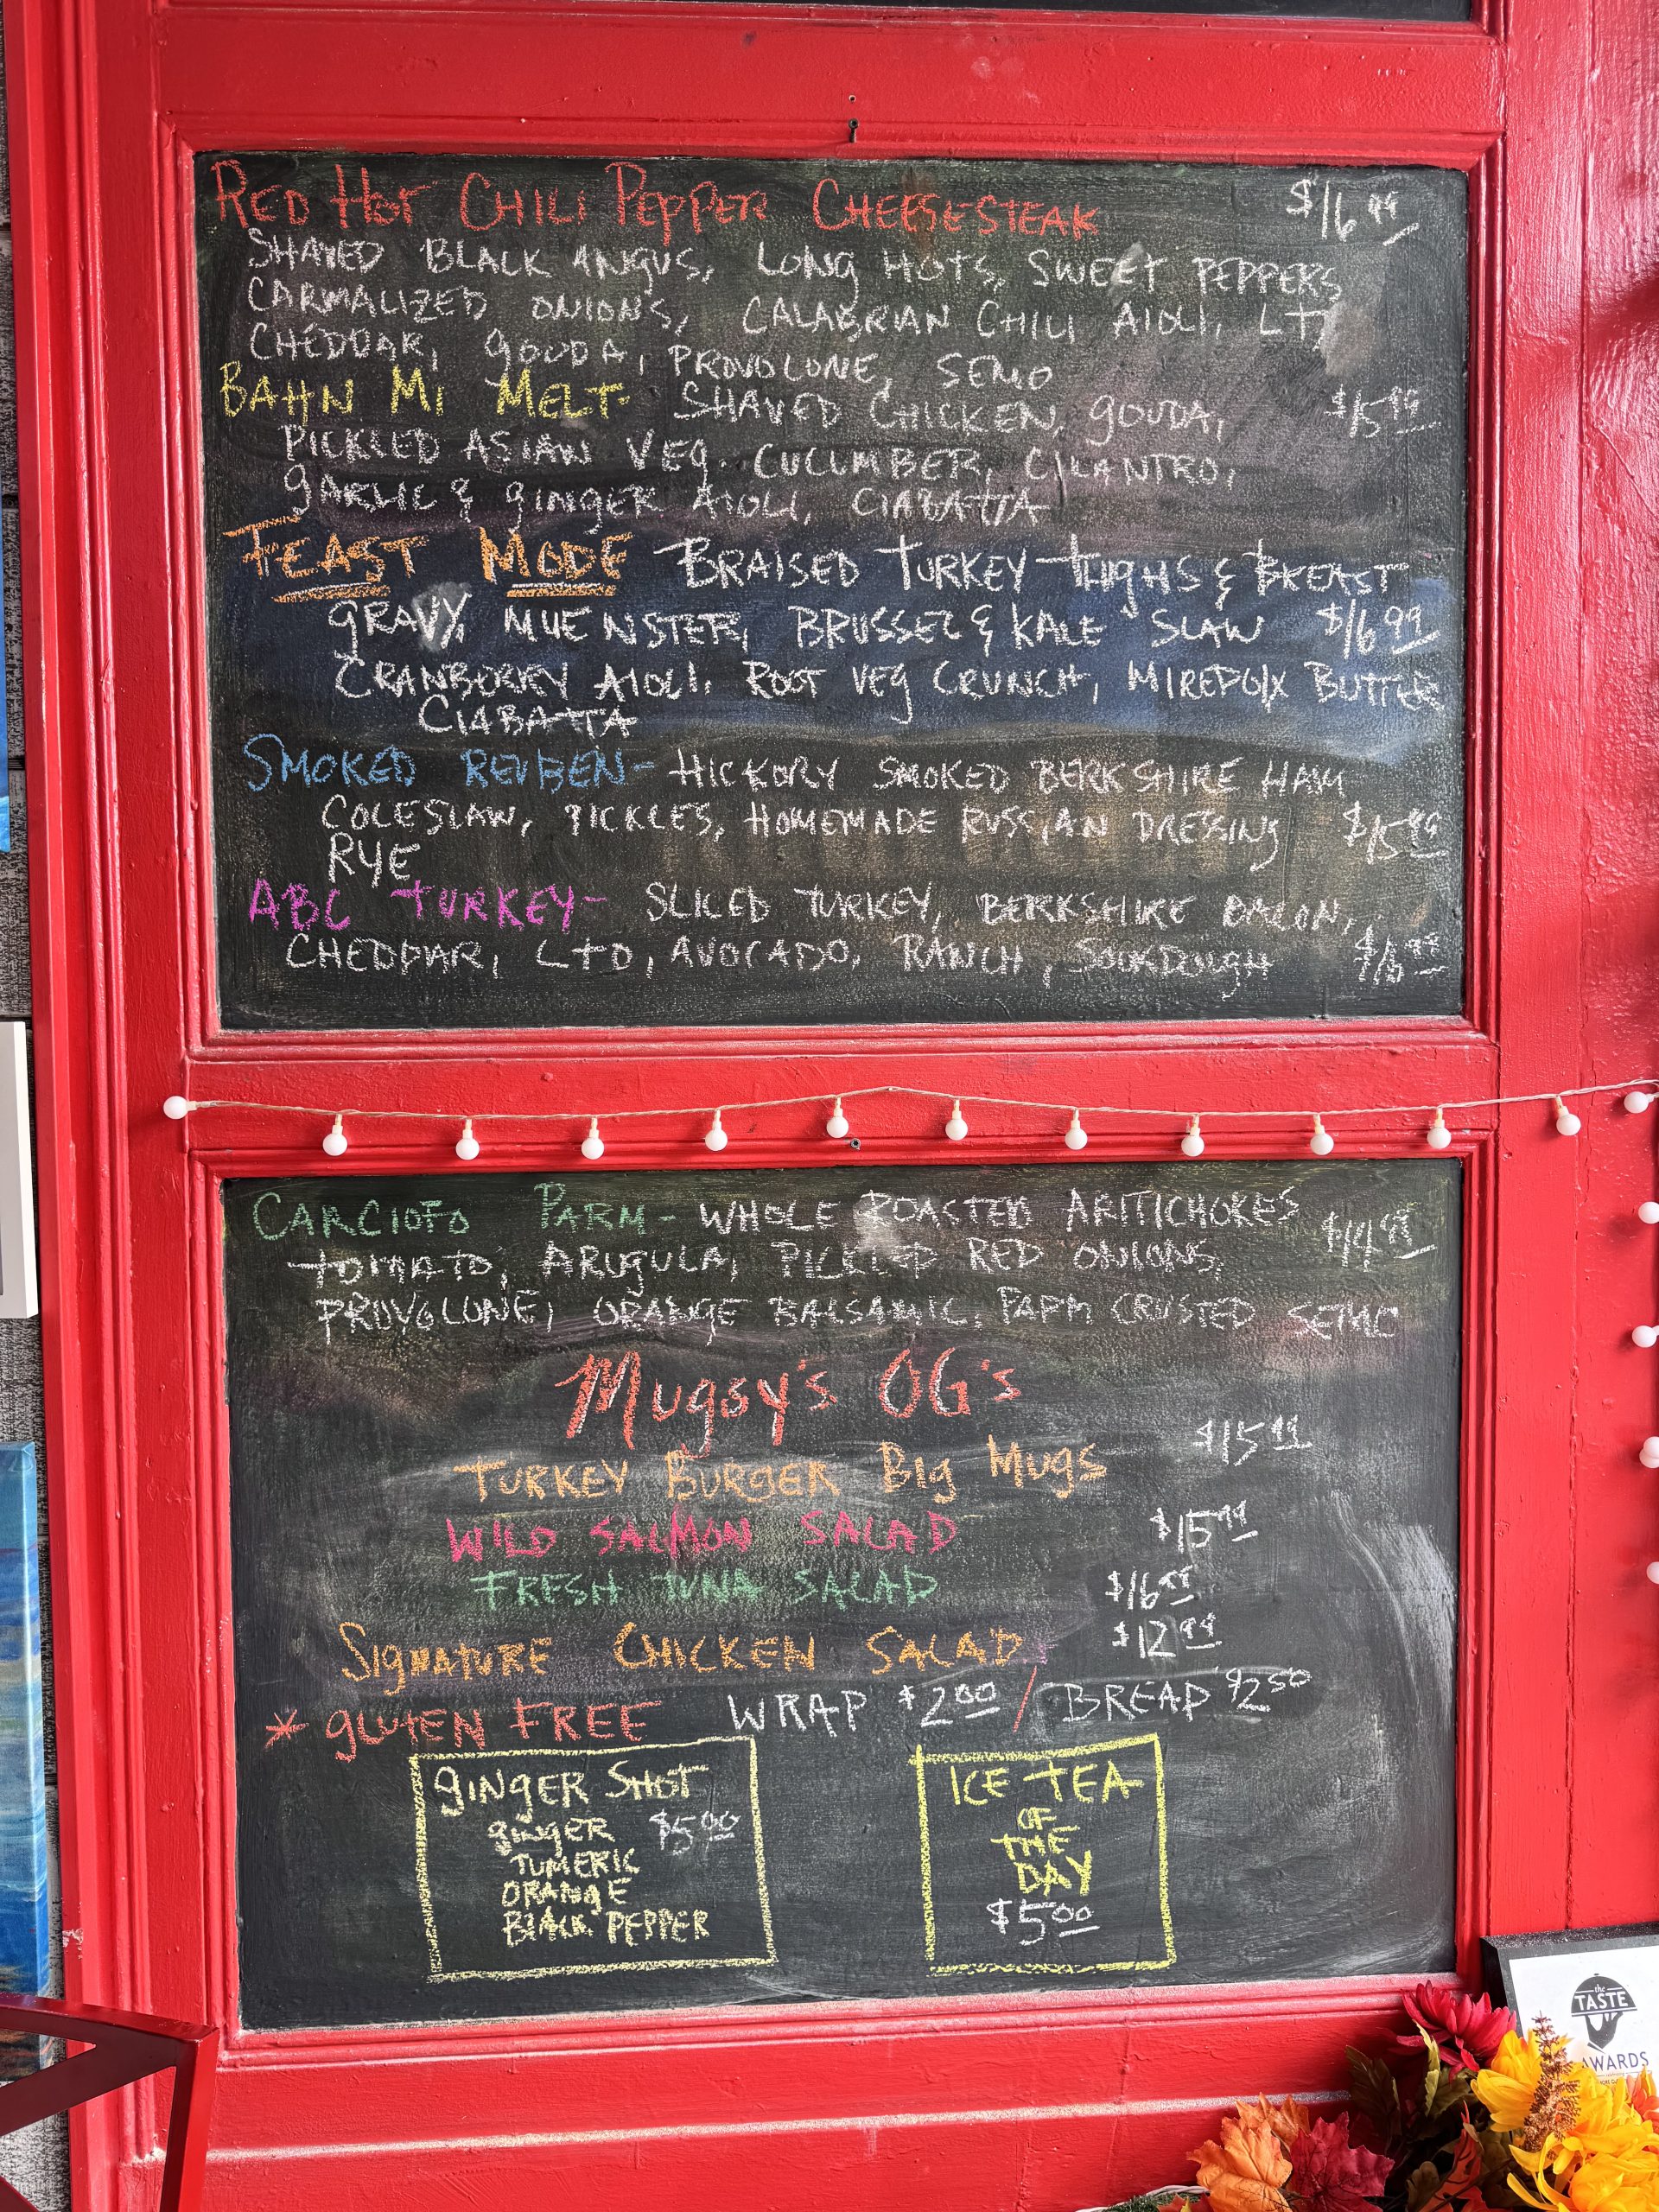 RED HOT CHILI PEPPER CHEESESTEAK $16.99
SHAVED BLACK ANGUS, LONG HOTS, SWEET PEPPERS
CARMALIZED ONIONS, CALABRIAN CHILI AIOLI,
CHEDDAR, GOUDA, PROVOLONE, SEMO
BAHN MI MELT- SHAVED CHICKEN, GOUDA, $15.99
PICKLED ASIAN VEG. CUCUMBER, CILANTRO,
GARLIC & GINGER AIOLI, CIABATTA
FEAST MODE BRAISED TURKEY THIGHS & BREAST
GRAVY, MUENSTER, BRUSSEL & KALE SLAW $16.99
CRANBERRY AIOLI, ROOT VEG CRUNCH, MIREPOIX BUTTER
CIABATTA
SMOKED REUBEN- HICKORY SMOKED BERKSHIRE HAM
COLESLAW, PICKLES, HOMEMADE RUSSIAN DRESSING $15.99
RYE
ABC TURKEY- SLICED TURKEY, BERKSHIRE BACON,
CHEDDAR, LTO, AVOCADO, RANCH, SOURDOUGH
CARCIOFO PARM- WHOLE ROASTED ARITICHOKES $14.99
TOMATO, ARUGULA, PICKLED RED ONIONS,
PROVOLONE, ORANGE BALSAMIC, PARM CRUSTED
Mugsy's OG's
TURKEY BURGER BIG MUGS $15.99
WILD SALMON SALAD $15.99
FRESH TUNA SALAD $16.99
SIGNATURE CHICKEN SALAD $12.99
* GLUTEN FREE WRAP $2.00 / BREAD $2.50
GINGER SHOT
GINGER $5.00
TUMERIC
ORANGE
BLACK PEPPER
ICE TEA
OF
THE
DAY
$5.00
the
TASTE
AWARDS